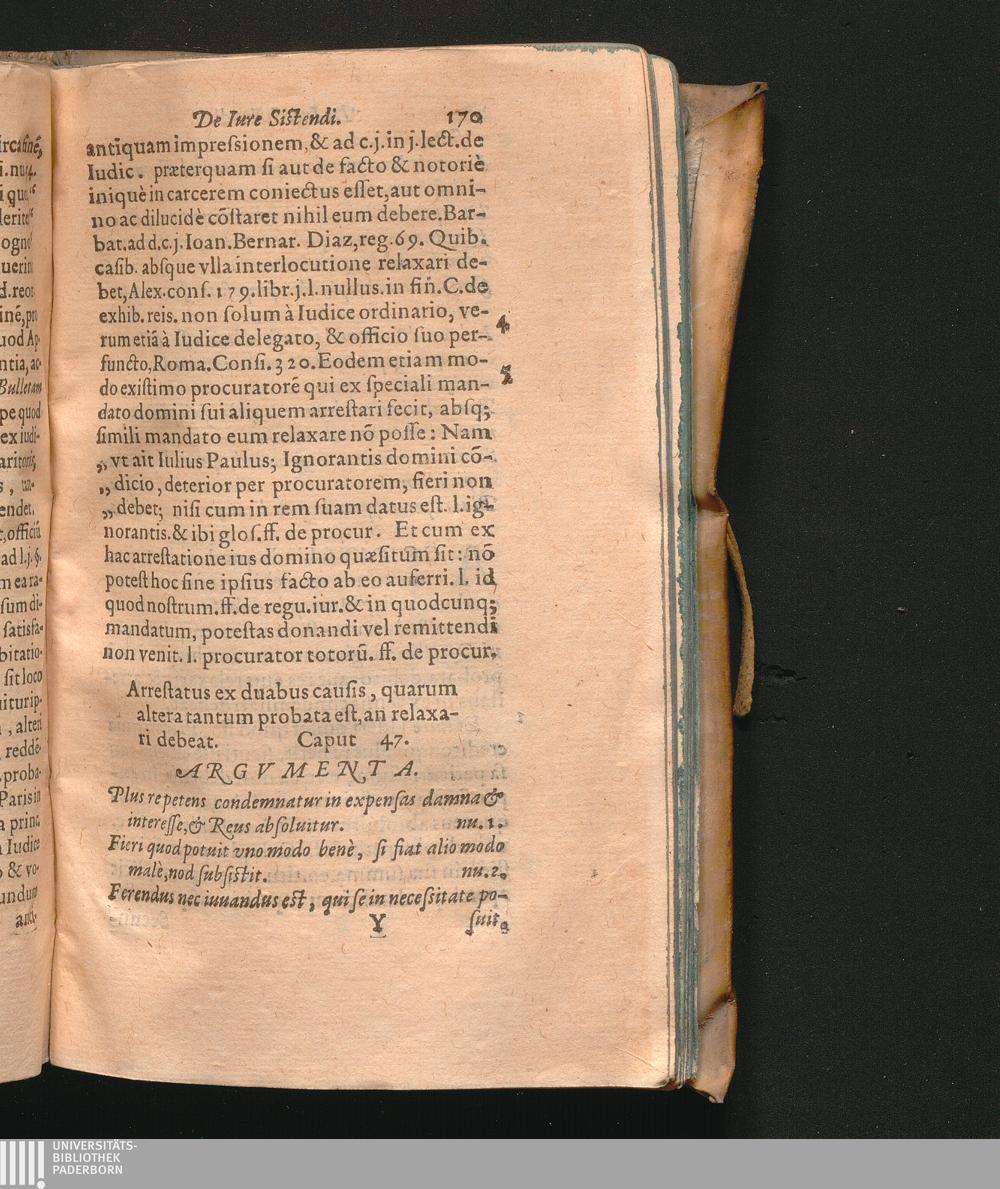 De Iure Sistendi. 170
antiquam impreſsionem, & ad c.j. in j. lect. de
Iudic. præterquam ſi aut de facto & notoriè
iniquè in carcerem coniectus eſſet, aut omni-
no ac dilucidè cõſtaret nihil eum debere. Bar-
bat. ad d.c.j. Ioan. Bernar. Diaz, reg. 69. Quib.
caſib. abſque vlla interlocutione relaxari de-
bet, Alex. conſ. 179. libr. j. l. nullus. in fiñ. C. de
exhib. reis. non ſolum à Iudice ordinario, ve-
rum etiã à Iudice delegato, & officio ſuo per- 4
functo, Roma. Conſi. 320. Eodem etiam mo-
do exiſtimo procuratorē qui ex ſpeciali man- 5
dato domini ſui aliquem arreſtari fecit, abſq;
ſimili mandato eum relaxare nõ poſſe: Nam
„ vt ait Iulius Paulus; Ignorantis domini cõ-
„ dicio, deterior per procuratorem, fieri non
„ debet; niſi cum in rem ſuam datus eſt. l. ig-
norantis. & ibi gloſ. ff. de procur. Et cum ex
hac arreſtatione ius domino quæſitum ſit: nõ
poteſt hoc ſine ipſius facto ab eo auferri. l. id
quod noſtrum. ff. de regu. iur. & in quodcunq;
mandatum, poteſtas donandi vel remittendi
non venit. l. procurator totorũ. ff. de procur.
Arreſtatus ex duabus cauſis, quarum
altera tantum probata eſt, an relaxa-
ri debeat. Caput 47.
ARGVMENTA.
Plus repetens condemnatur in expenſas damna &
intereſſe, & Reus abſoluitur. nu. 1.
Fieri quod potuit vno modo benè, ſi fiat alio modo
malè, nod ſubſiſtit. nu. 2.
Ferendus nec iuuandus eſt, qui ſe in neceſsitate po-
Y ſuit.
UNIVERSITÄTS-
BIBLIOTHEK
PADERBORN